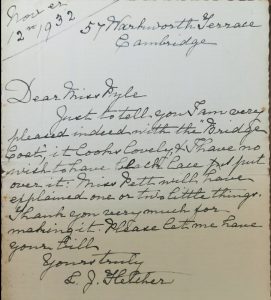 Nov er
12th 1932
57 Warkworth Terrace
Cambridge
Dear Miss Pyle
Just to tell you I am very
pleased indeed with the "Bridge
Coat", it looks lovely & I have no
wish to have Black lace put
over it. Miss Pett will have
explained one or two little things.
Thank you very much for
making it. Please let me have
your bill
Yours truly
L. J. Fletcher